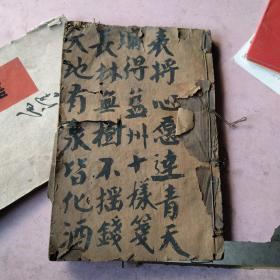 表抒心愿達青天
得益州十樣箋
長林無樹不搖錢
天地有泉皆化酒